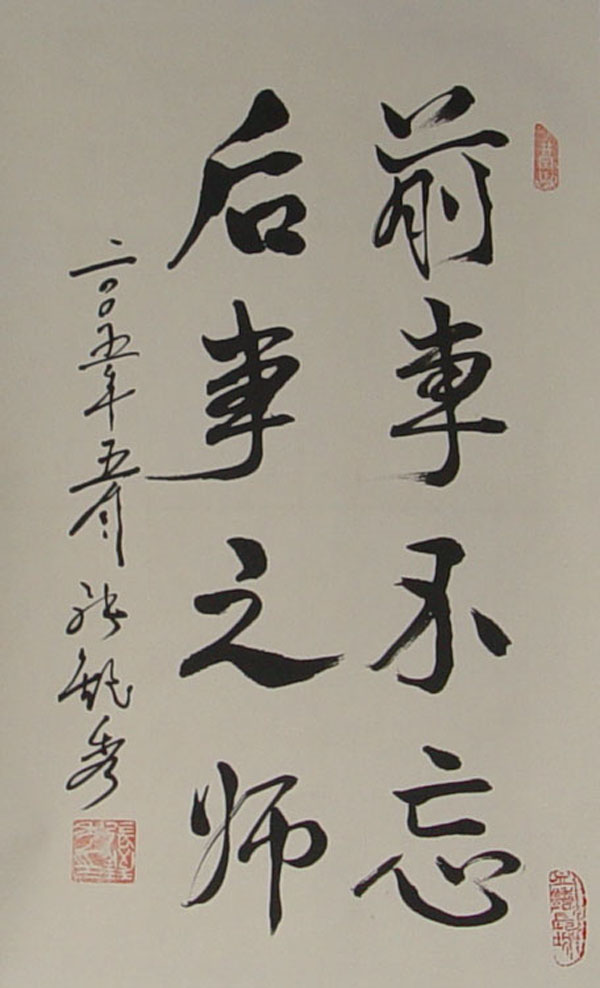 前事不忘
后事之师
二〇〇五年五月 张